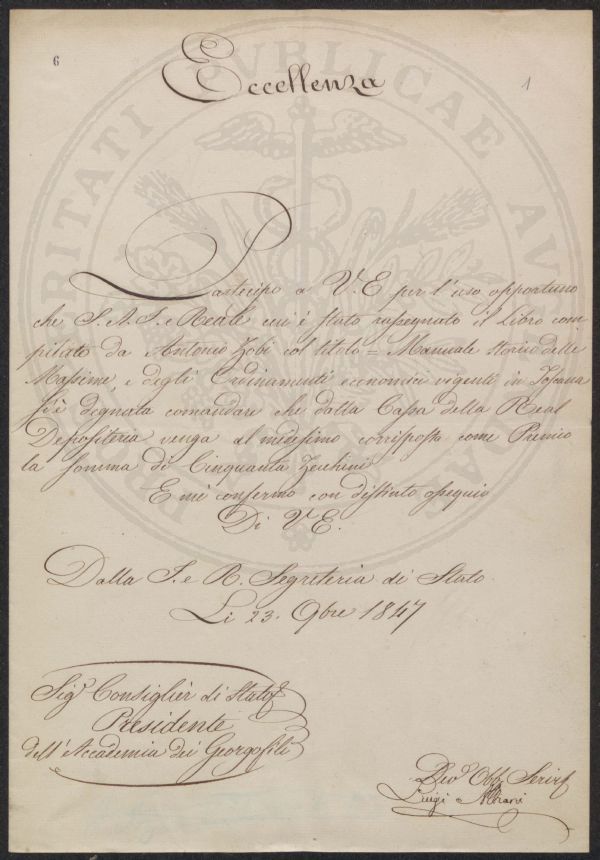 6
1
Eccellenza
Partecipo a V.E. per l'uso opportuno
che S.A.I. e Reale cui è stato rassegnato il Libro com
pilato da Antonio Zobi col titolo = Manuale storico delle
Massime, e degli Ordinamenti economici vigenti in Toscana
si è degnata comandare che dalla Cassa della Real
Depositeria venga al medesimo corrisposta come Premio
la somma di Cinquanta Zecchini
E mi confermo con distinto ossequio
Di V.E.
Dalla I. e R. Segreteria di Stato
Li 23. 9bre 1847
Sigr Consiglier di Stato
Presidente
dell'Accademia dei Georgofili
Devo Obb Serve
Luigi Albiani
PROSPERITATI PUBLICAE AUGENDAE